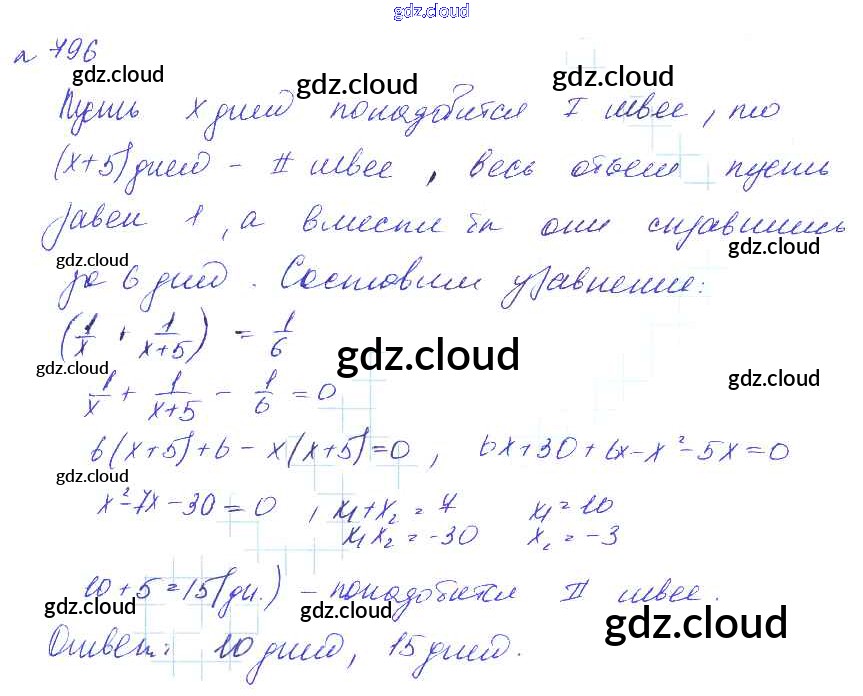 gdz.cloud
№ 796
gdz.cloud gdz.cloud gdz.cloud
Пусть x дней понадобится I швее, то
(x+5) дней - II швее, весь объем пусть
равен 1, а вместе они справились
gdz.cloud gdz.cloud
за 6 дней. Составим уравнение:
(1/x + 1/(x+5)) = 1/6
gdz.cloud gdz.cloud gdz.cloud
1/x + 1/(x+5) - 1/6 = 0
6(x+5)+6 - x(x+5)=0, 6x+30+6x-x²-5x=0
gdz.cloud
x²-7x-30=0, x₁+x₂=7 x₁=10
x₁x₂=-30 x₂=-3
10+5=15(дн.) - понадобится II швее.
gdz.cloud gdz.cloud gdz.cloud
Ответ: 10 дней, 15 дней.